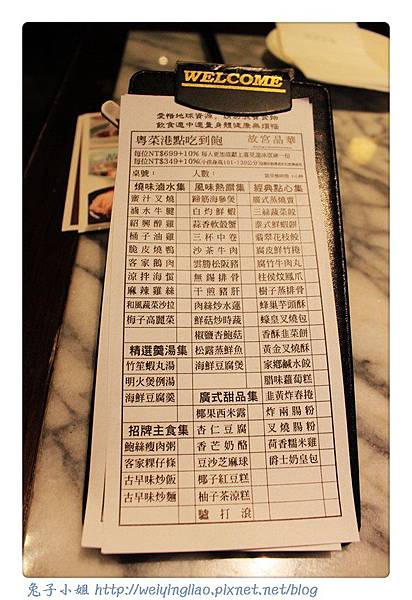 WELCOME
愛惜地球資源
飲食適中適量身體健康無煩惱
粵菜港點吃到飽 故宮晶華
每位NT$699+10%
每位NT$349+10%
桌號： 人數：
燒味滷水集 風味熱饌集 經典點心集
蜜汁叉燒
滷水牛腱 白灼鮮蝦
紹興醉雞 蒜香軟殼蟹 泰式鮮蝦餅
桶子油雞 三杯中卷 翡翠花枝餃
脆皮燒鴨 沙茶牛肉 腐皮鮮竹捲
客家鵝肉 雲勝松阪豬 腐竹牛肉丸
涼拌海蜇 無錫排骨 柱侯炆鳳爪
麻辣雞絲 干煎豬肝 樹子蒸排骨
和風蔬菜沙拉 肉絲炒水蓮 蜂巢芋頭酥
梅子高麗菜 鮮菇炒時蔬 蠔皇叉燒包
椒鹽杏鮑菇 香酥韭菜餅
精選羹湯集 松露蒸鮮魚 黃金叉燒酥
竹笙蝦丸湯 海鮮豆腐煲 家鄉鹹水餃
明火煲例湯 臘味蘿蔔糕
海鮮豆腐羹 廣式甜品集 韭黃炸春捲
椰果西米露 炸兩腸粉
招牌主食集 杏仁豆腐 叉燒腸粉
鮑絲瘦肉粥 香芒奶酪 荷香糯米雞
客家粿仔條 豆沙芝麻球 爵士奶皇包
古早味炒飯 椰子紅豆糕
古早味炒麵 柚子茶涼糕
驢打滾
兔子小姐 http://weiyingliao.pixnet.net/blog